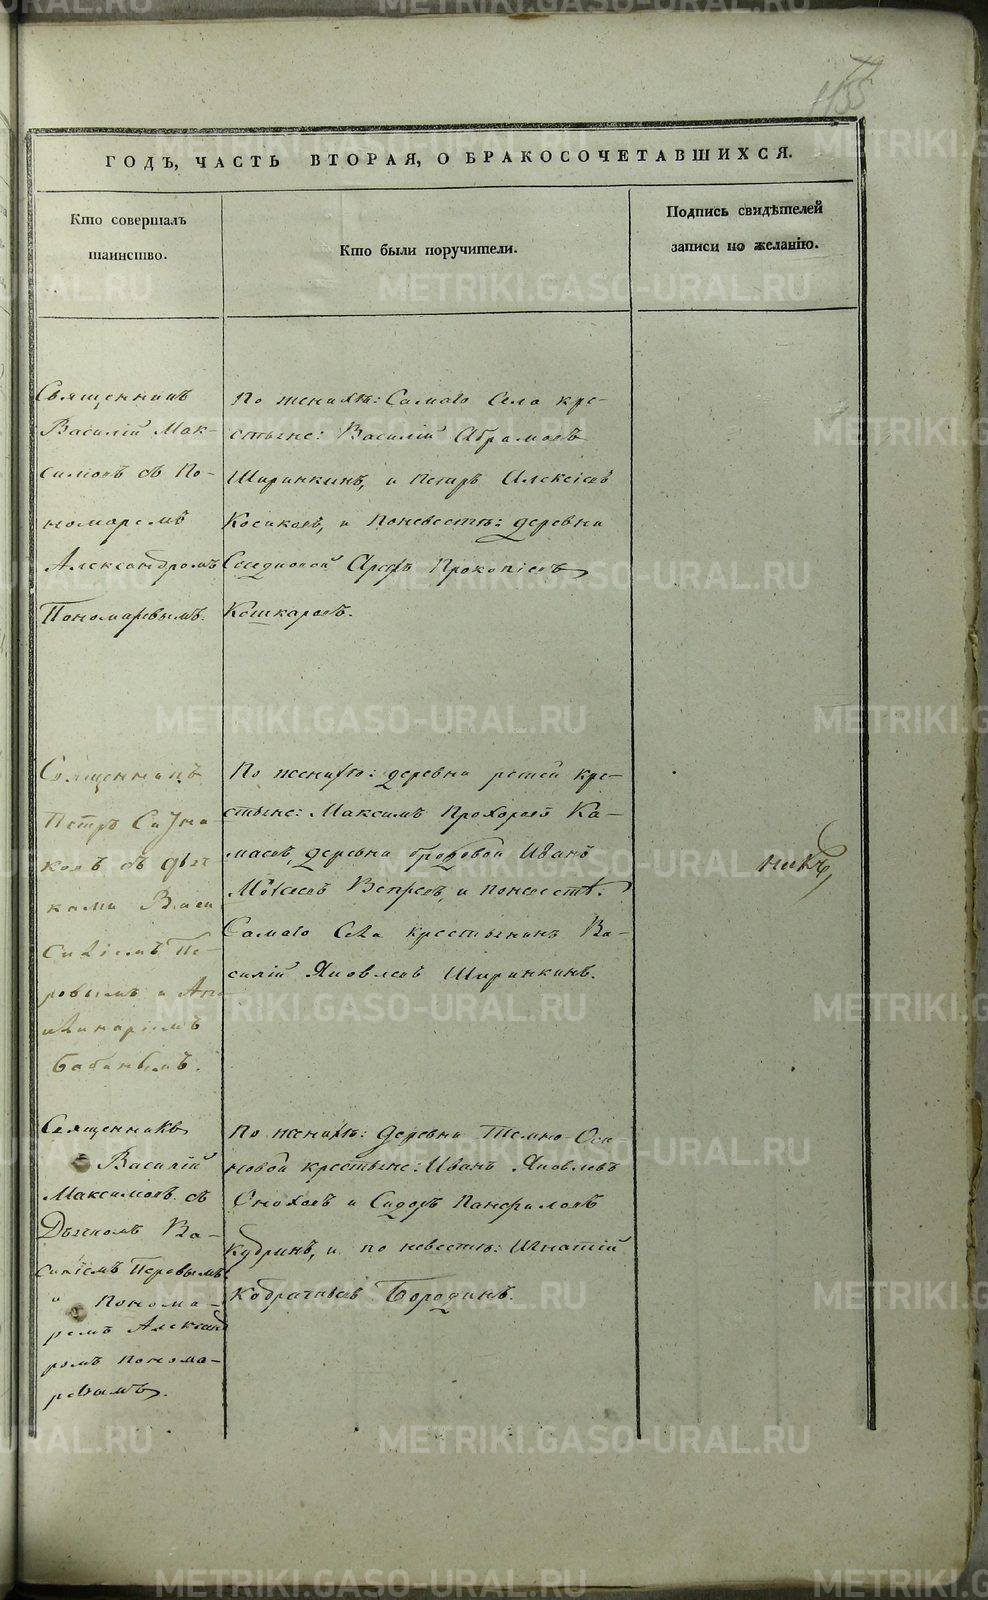 1155
ГОДЪ, ЧАСТЬ ВТОРАЯ, О БРАКОСОЧЕТАВШИХСЯ.
Кто совершалъ
таинство.
Кто были поручители.
Подпись свидѣтелей
записи по желанію.
Священникъ
Василій Мак-
симовъ съ По-
номаремъ
Александромъ
Пономаревымъ.
По женихѣ: Самаго Села кре-
стьяне: Василій Абрамовъ
Ширинкинъ, и Петръ Алексѣевъ
Косиковъ, и поневестѣ: деревни
Прокопіевъ
Кошкаровъ.
Священникъ
Петръ
съ дьяч
ками Васи
Силіемъ Пе-
ровымъ и Ап
Бабинымъ.
По женихѣ: деревни речей кре-
стьяне: Максимъ Прохоровъ Ка-
маевъ, деревни Иванъ
Моисеевъ Вепревъ, и поневестѣ:
Самаго Села крестьянинъ Ва-
силій Яковлевъ Ширинкинъ.
нихъ
Священникъ
Василій
Максимовъ съ
Дьячкомъ Ва-
силіемъ Перовымъ
и Понома-
ремъ Александ
ромъ понома-
ревымъ.
По женихѣ: Деревни Темно-Оси
новой крестьяне: Иванъ Яковлевъ
и Сидоръ Панфиловъ
Кудринъ, и по невестѣ: Игнатій
Кодратьевъ Бородинъ.
METRIKI.GASO-URAL.RU